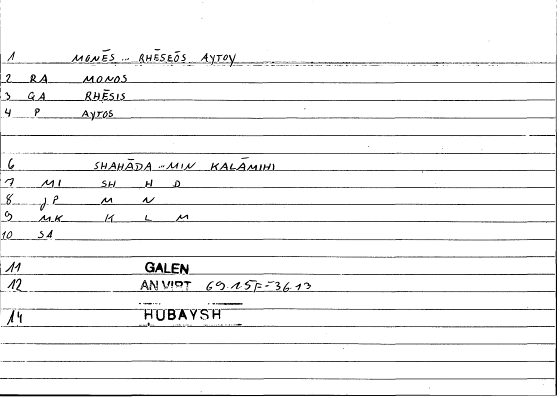 1 MONĒS ... RHĒSEŌS AYTOY
2 RA MONOS
3 GA RHĒSIS
4 P AYTOS
6 SHAHĀDA ... MIN KALĀMIHI
7 MI SH H D
8 JP M N
9 MK K L M
10 SA
11 GALEN
12 AN VIRT 69.15F=36.13
14 HUBAYSH